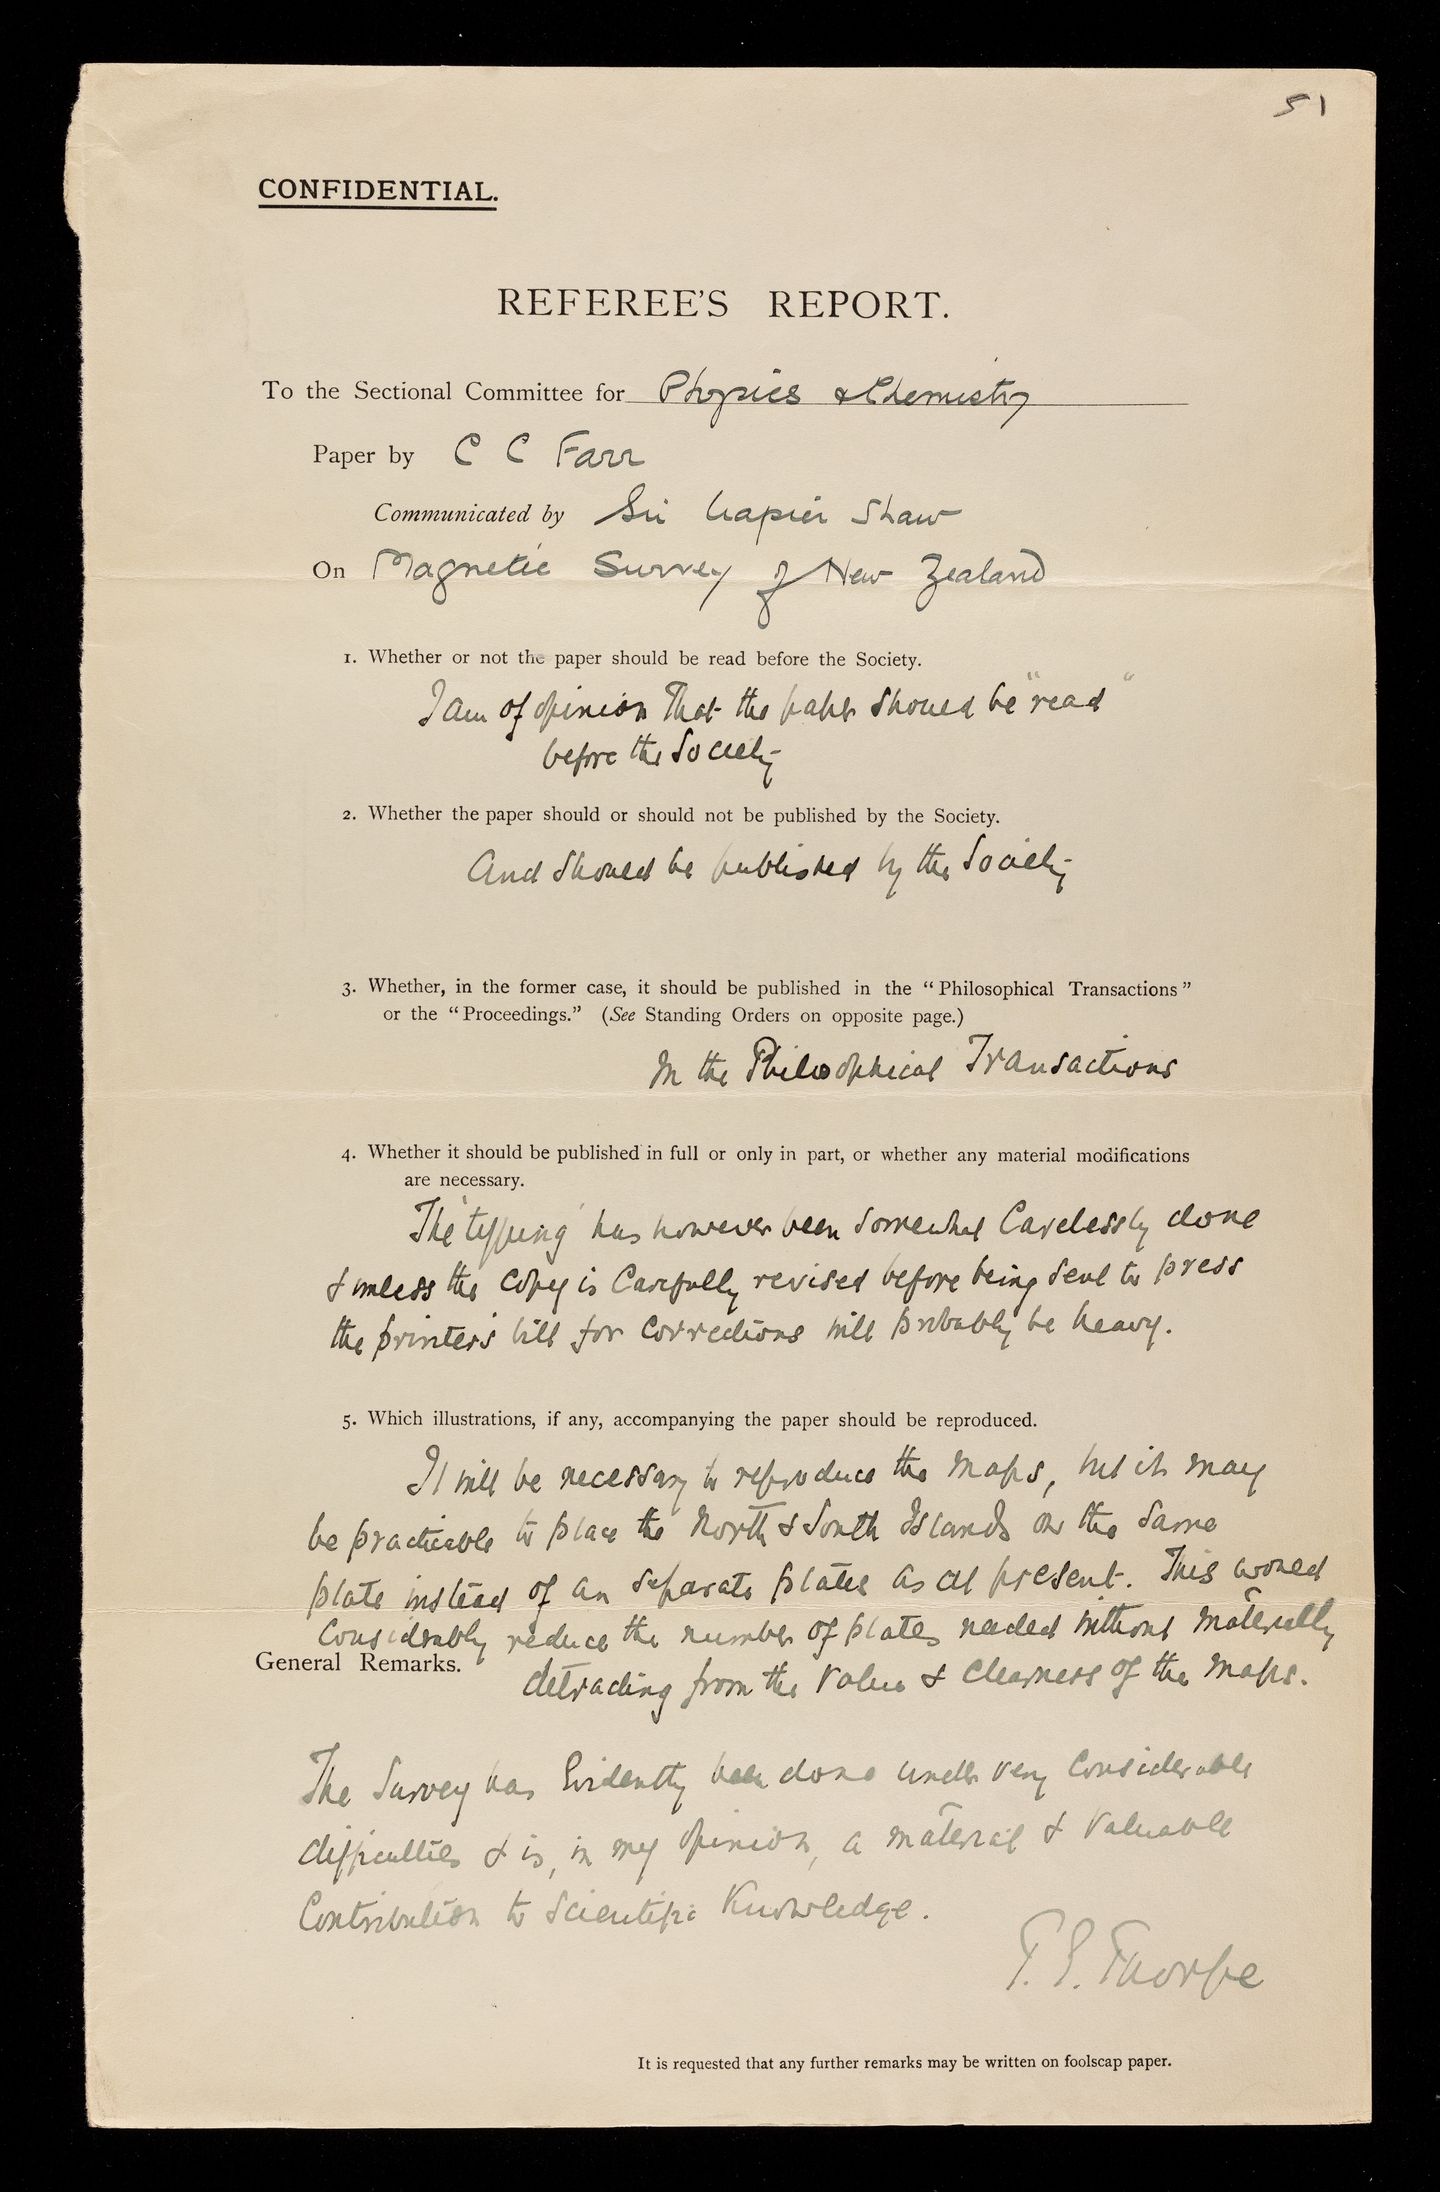 51
CONFIDENTIAL.
REFEREE'S REPORT.
To the Sectional Committee for Physics & Chemistry
Paper by C C Farr
Communicated by Sir Napier Shaw
On Magnetic Survey of New Zealand
1. Whether or not the paper should be read before the Society.
I am of opinion that the paper should be "read"
before the Society
2. Whether the paper should or should not be published by the Society.
And should be published by the Society
3. Whether, in the former case, it should be published in the "Philosophical Transactions"
or the "Proceedings." (See Standing Orders on opposite page.)
In the Philosophical Transactions
4. Whether it should be published in full or only in part, or whether any material modifications
are necessary.
The 'typing' has however been somewhat carelessly done
& unless the copy is carefully revised before being sent to press
the printer's bill for corrections will probably be heavy.
5. Which illustrations, if any, accompanying the paper should be reproduced.
It will be necessary to reproduce the maps, but it may
be practicable to place the North & South Islands on the same
plate instead of on separate plates as at present. This would
considerably reduce the number of plates needed without materially
General Remarks. detracting from the value & clearness of the maps.
The Survey has evidently been done under very considerable
difficulties & is, in my opinion, a material & valuable
contribution to scientific knowledge.
T. E. Thorpe
It is requested that any further remarks may be written on foolscap paper.